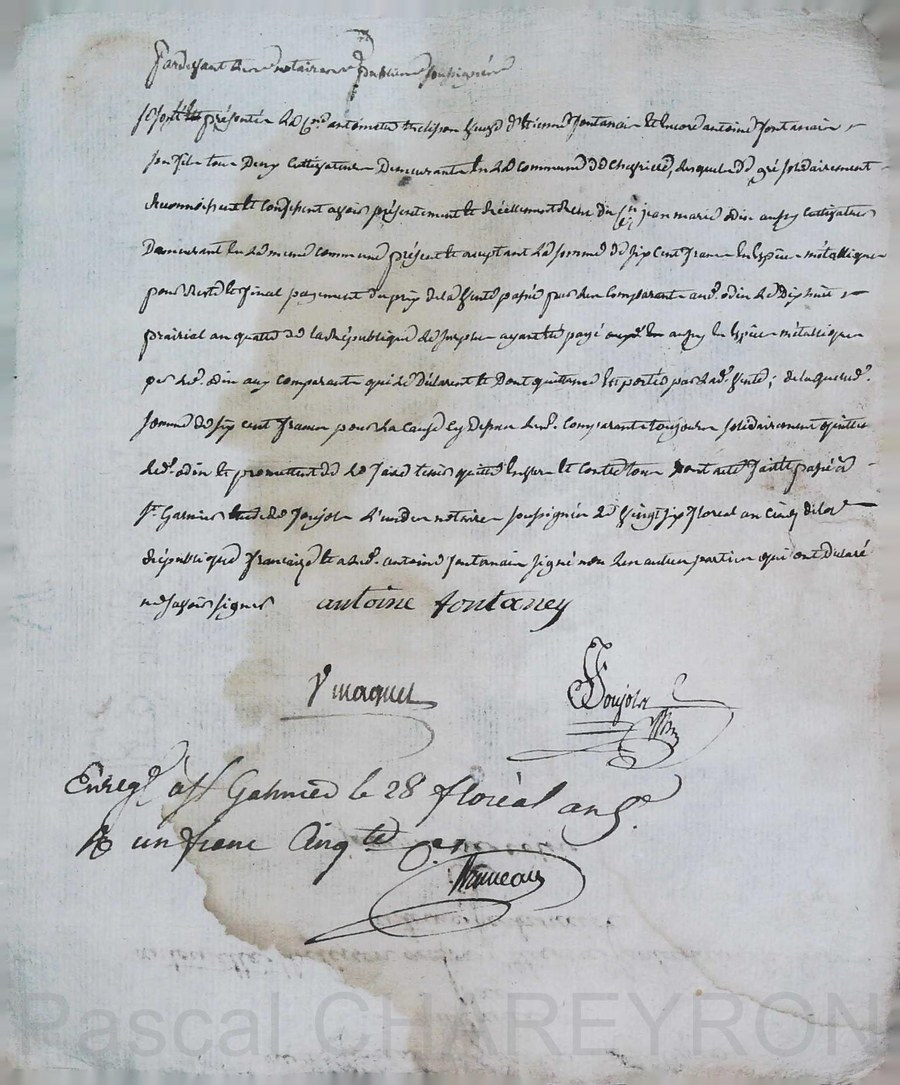 Pardevant les notaires publics soussignés
se sont présentés la Cne antoinette belisson veuve d'etienne fontanais et encore antoine fontanais
son fils tous deux cultivateurs demeurants en la commune de
reconnoissent et confessent avoir présentement et réellement reçu du Cen jean marie odin aussy cultivateur
demeurant en la meme commune présent et acceptant la somme de six cent francs en espèces métalliques
pour reste et final payement du prix de la vente passé par les comparants aud. odin le dix huit
prairial an quatre de la république le surplus ayant été payé en aussy en espèces métalliques
par led. odin aux comparants qui le déclarent et dont quittance est portée par lad. vente; de laquelle d.
somme de six cent francs pour la cause cy dessus les d. comparants toujours solidairement quittent
led. odin et promettent de le faire tenir quitte envers et contre tous dont acte fait et passé à
St. Galmier de Soujol l'un des notaires soussignés le vingt six floreal an cinq de la
république française et a led. antoine fontanais signé non les autres parties qui ont déclaré
ne savoir signer antoine fontaney
maquet
Soujol
Enregé à St Galmier le 28 floréal an 5e.
R un franc Cinqte Cen
Pascal CHAREYRON